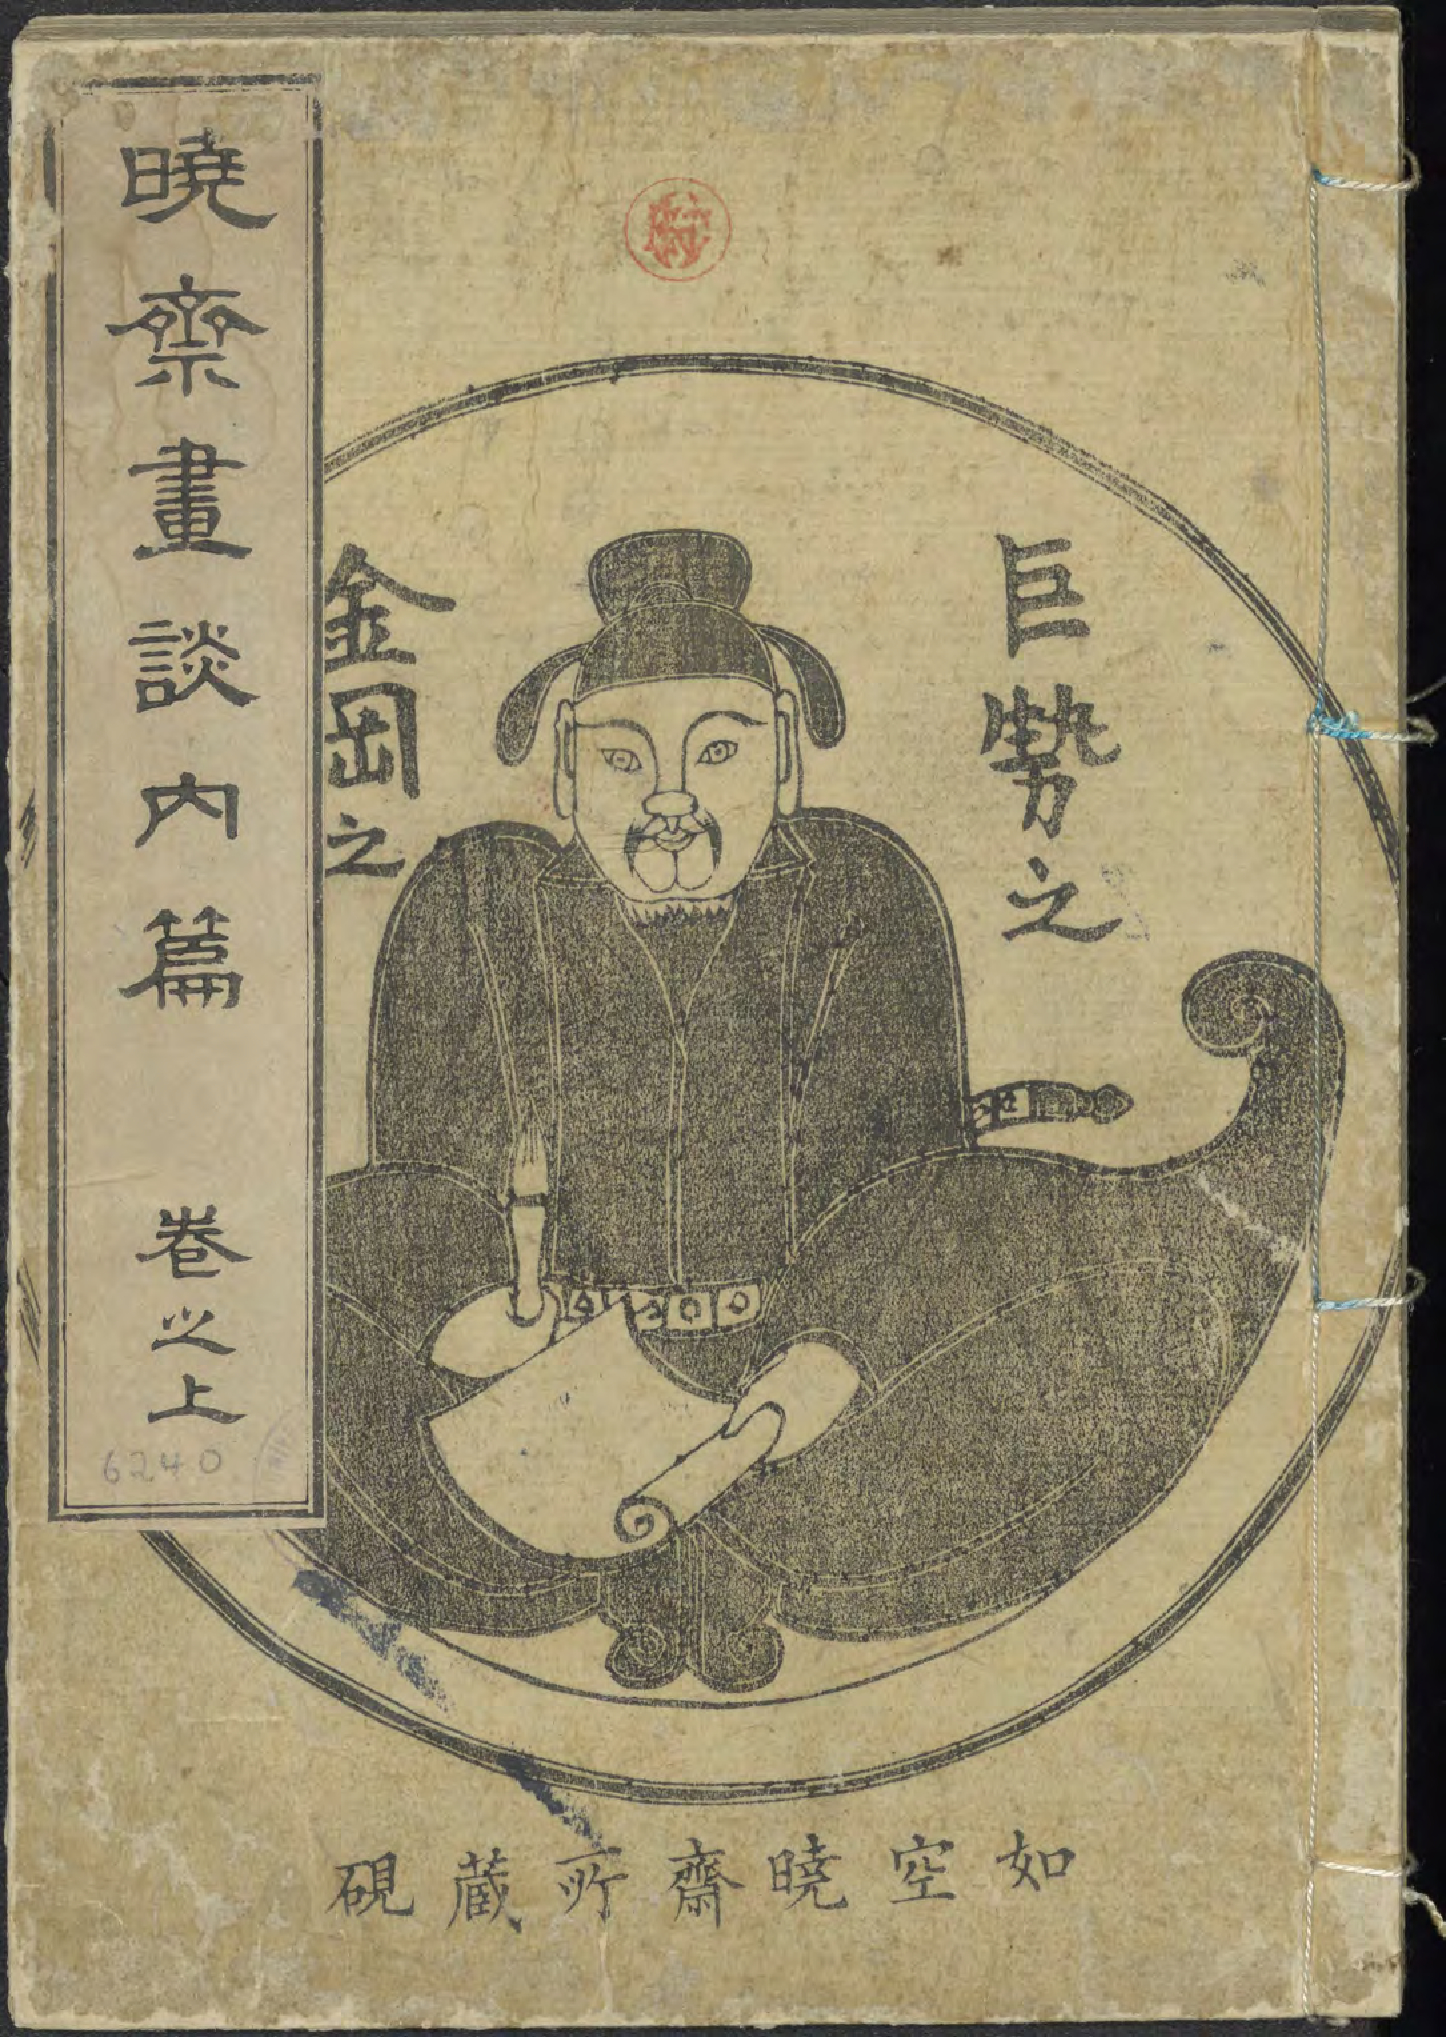 暁齋畫談内篇
巻之上
6240
巨勢之
金岡之
如空暁齋所蔵硯